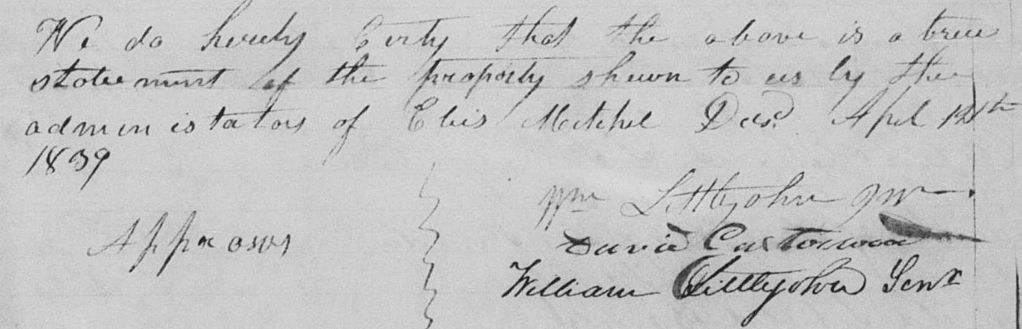 We do herely Certy that the above is a true
statement of the proporty shewn to us by the
administators of Elis Mitchel Decsd. Apel 12th
1839
Wm Littlejohn Jnr
Appraoses
David
William Littlejohn Senr